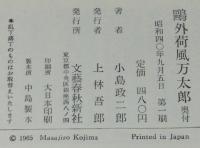 鷗外荷風万太郎 奥付
昭和四〇年九月五日 第一刷
定価 四八〇円
著者 小島政二郎
発行者 上林吾郎
発行所 文藝春秋新社
東京都中央区銀座西八ノ四
印刷所 大日本印刷
製本所 中島製本
落丁乱丁のものはお取替えいたします
© 1965 Masajiro Kojima Printed in Japan